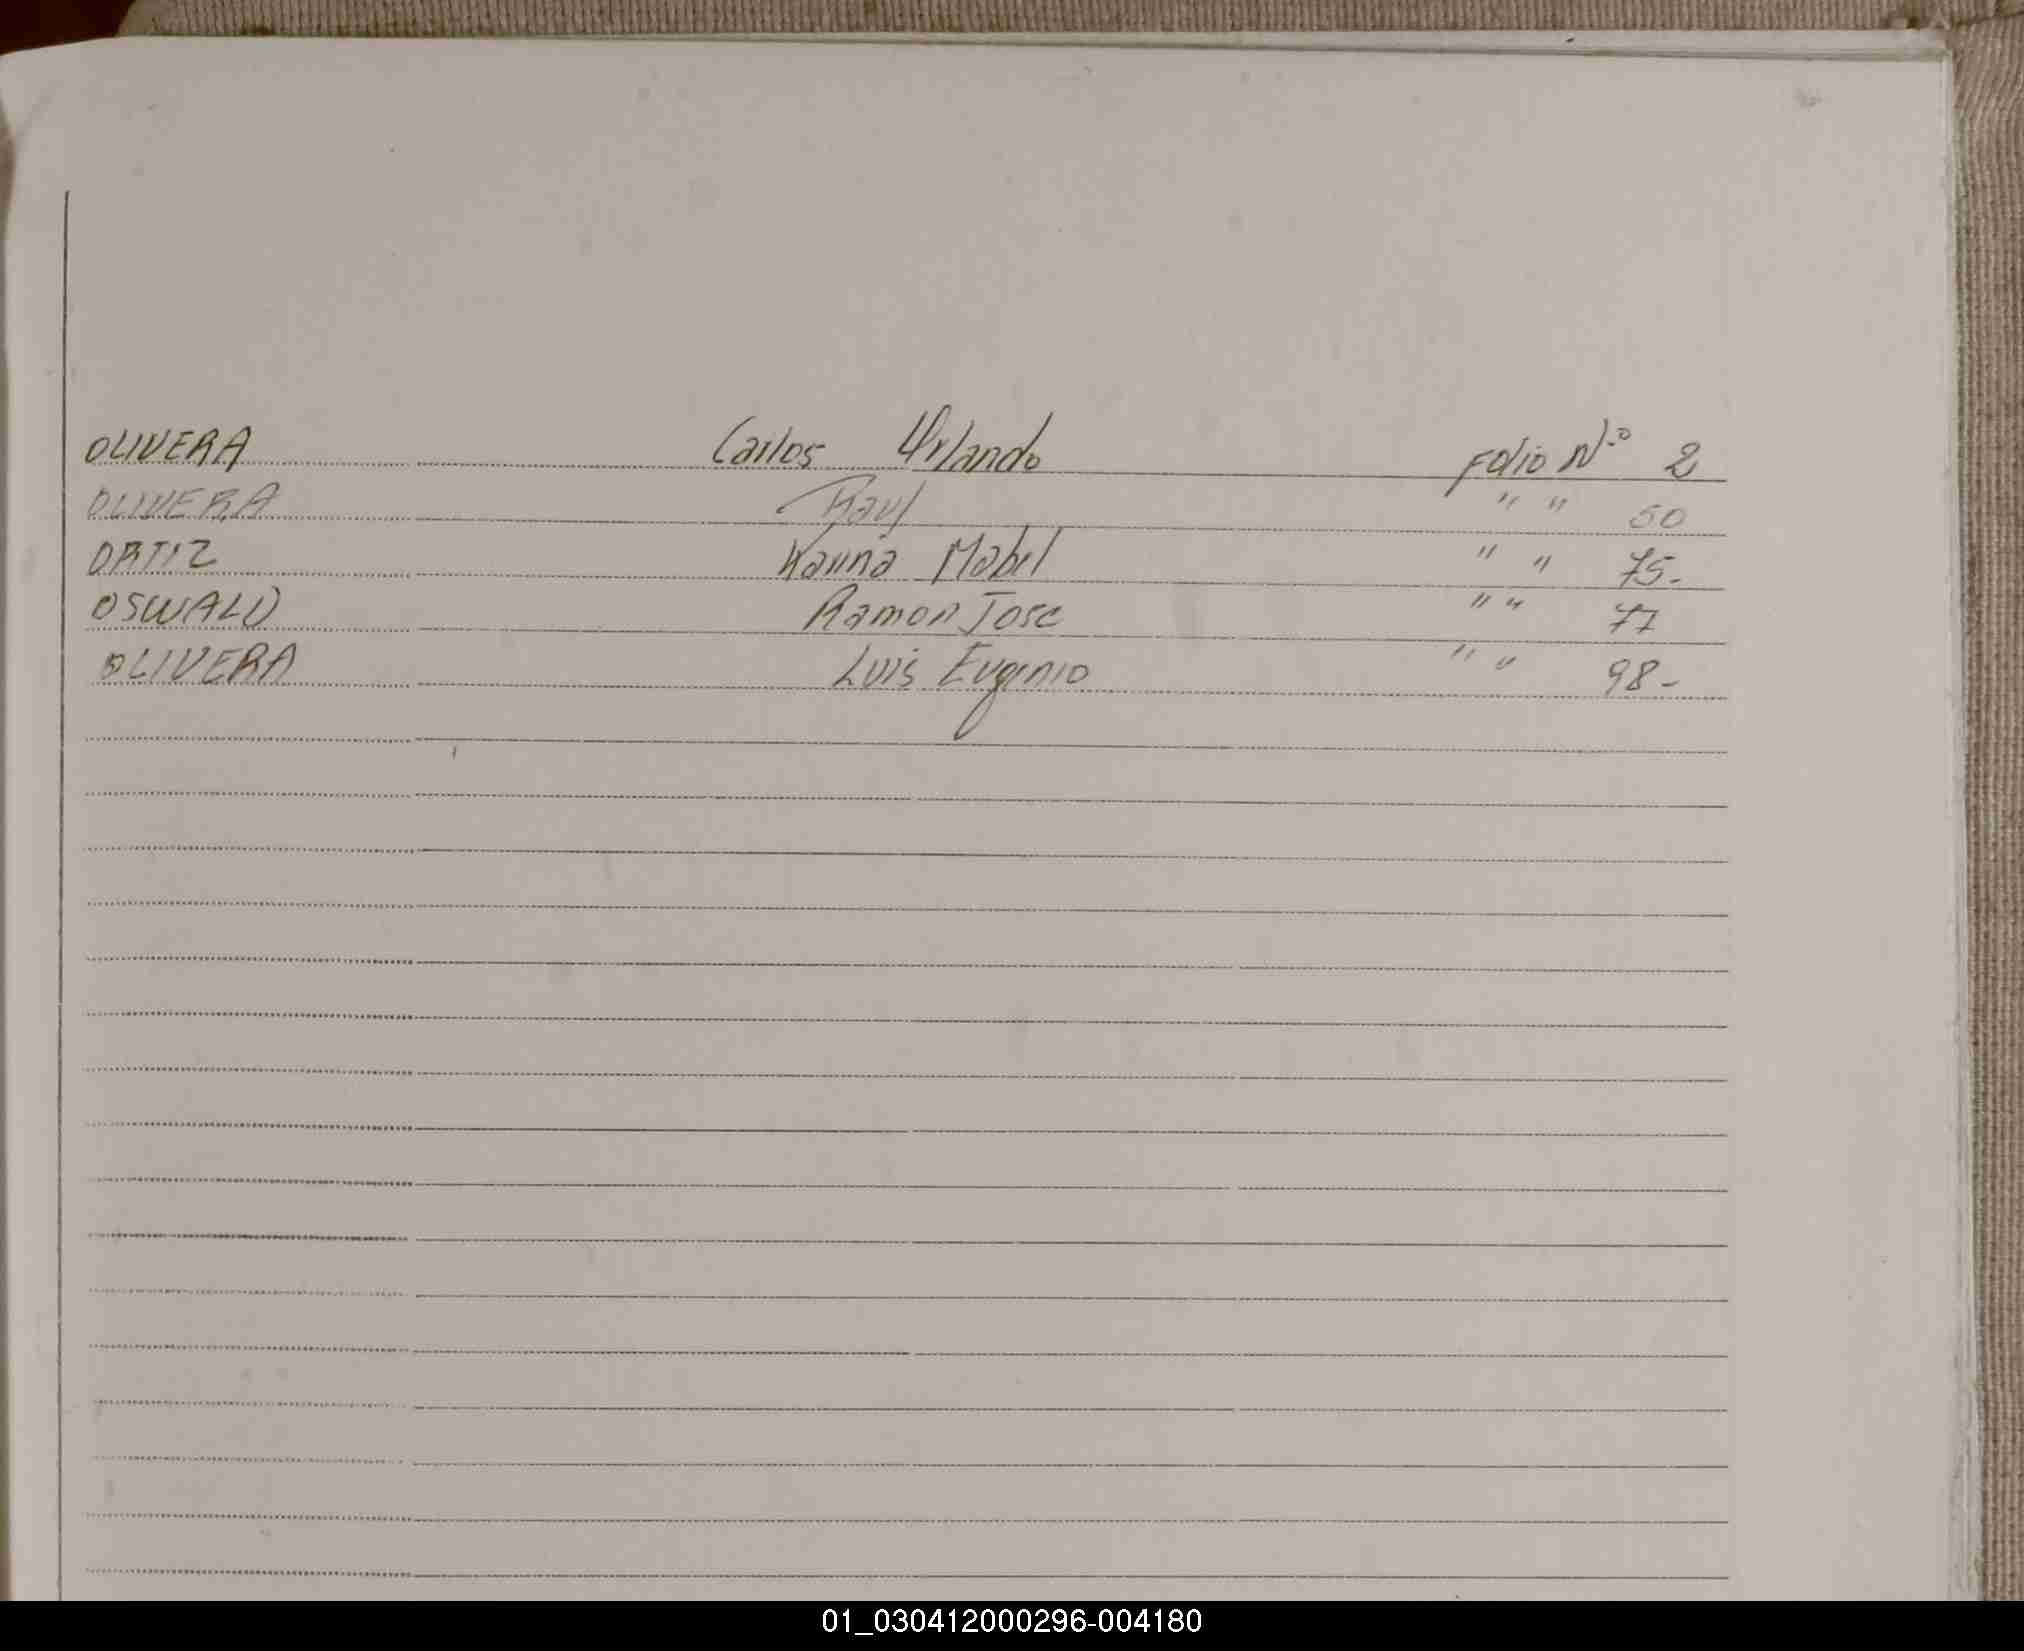 OLIVERA Carlos Orlando Folio N.º 2
OLIVERA Raul " " 50
ORTIZ Mabel " " 75-
OSWALD Ramon Jose " " 77
OLIVERA Luis Eugenio " " 98-
01_030412000296-004180